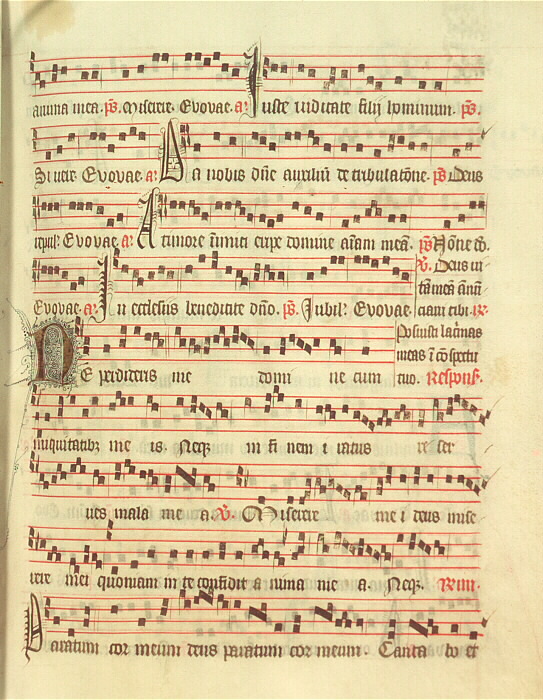 anima mea. ps. Miserere. Evovae. a. Iuste iudicate filij hominum. ps.
Si vere. Evovae. a. Da nobis dñe auxiliũ de tribulatõne. ps. Deus
repul. Evovae. a. A timore inimici eripe domine aĩam meã. ps.
Evovae. a. In ecclesiis benedicite dño. ps. Iubil. Evovae.
℣. Deus
Posuisti lacrimas
meas ĩ cõspectu
tuo. Respons.
NE perdideris me domi ne cum
iniquitatibꝫ me is. Neqꝫ in fi nem i ratus re ser
ves mala me a. ℣. Miserere me i deus mise
rere mei quoniam in te confidit a nima me a. Neqꝫ.
Paratum cor meum deus paratum cor meum. Canta bo et